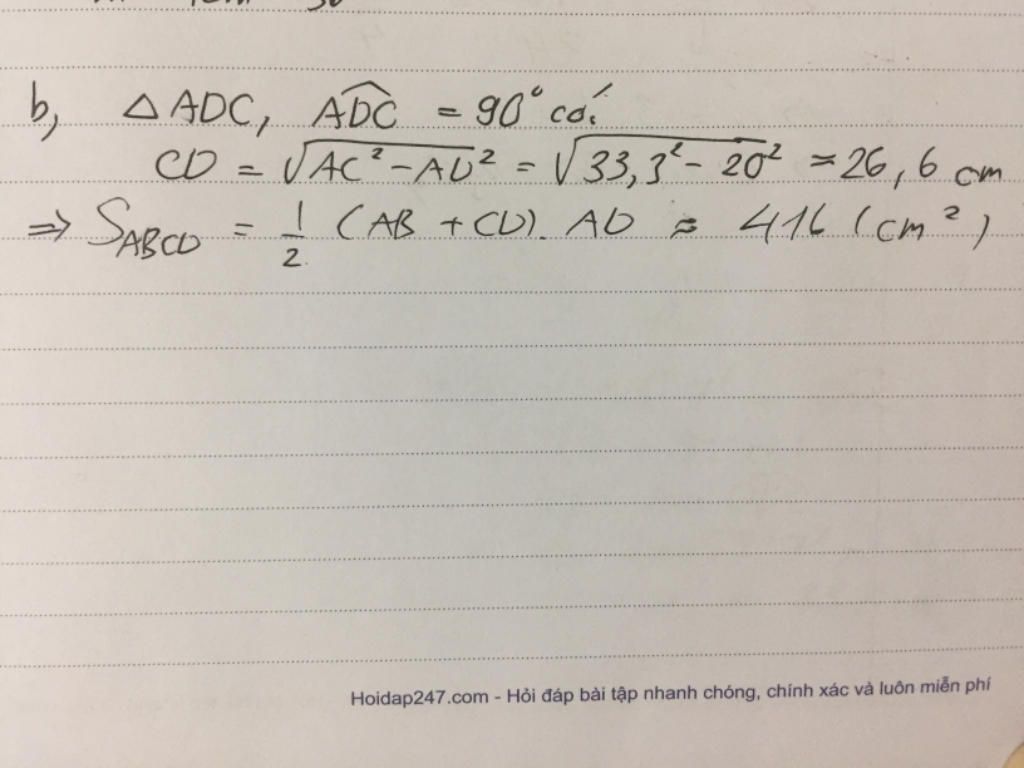 b, △ADC, \widehat{ADC} = 90° có:
CD = √(AC² - AD²) = √(33,3² - 20²) ≈ 26,6 cm
⇒ S_ABCD = 1/2 (AB + CD). AD ≈ 416 (cm²)
Hoidap247.com - Hỏi đáp bài tập nhanh chóng, chính xác và luôn miễn phí